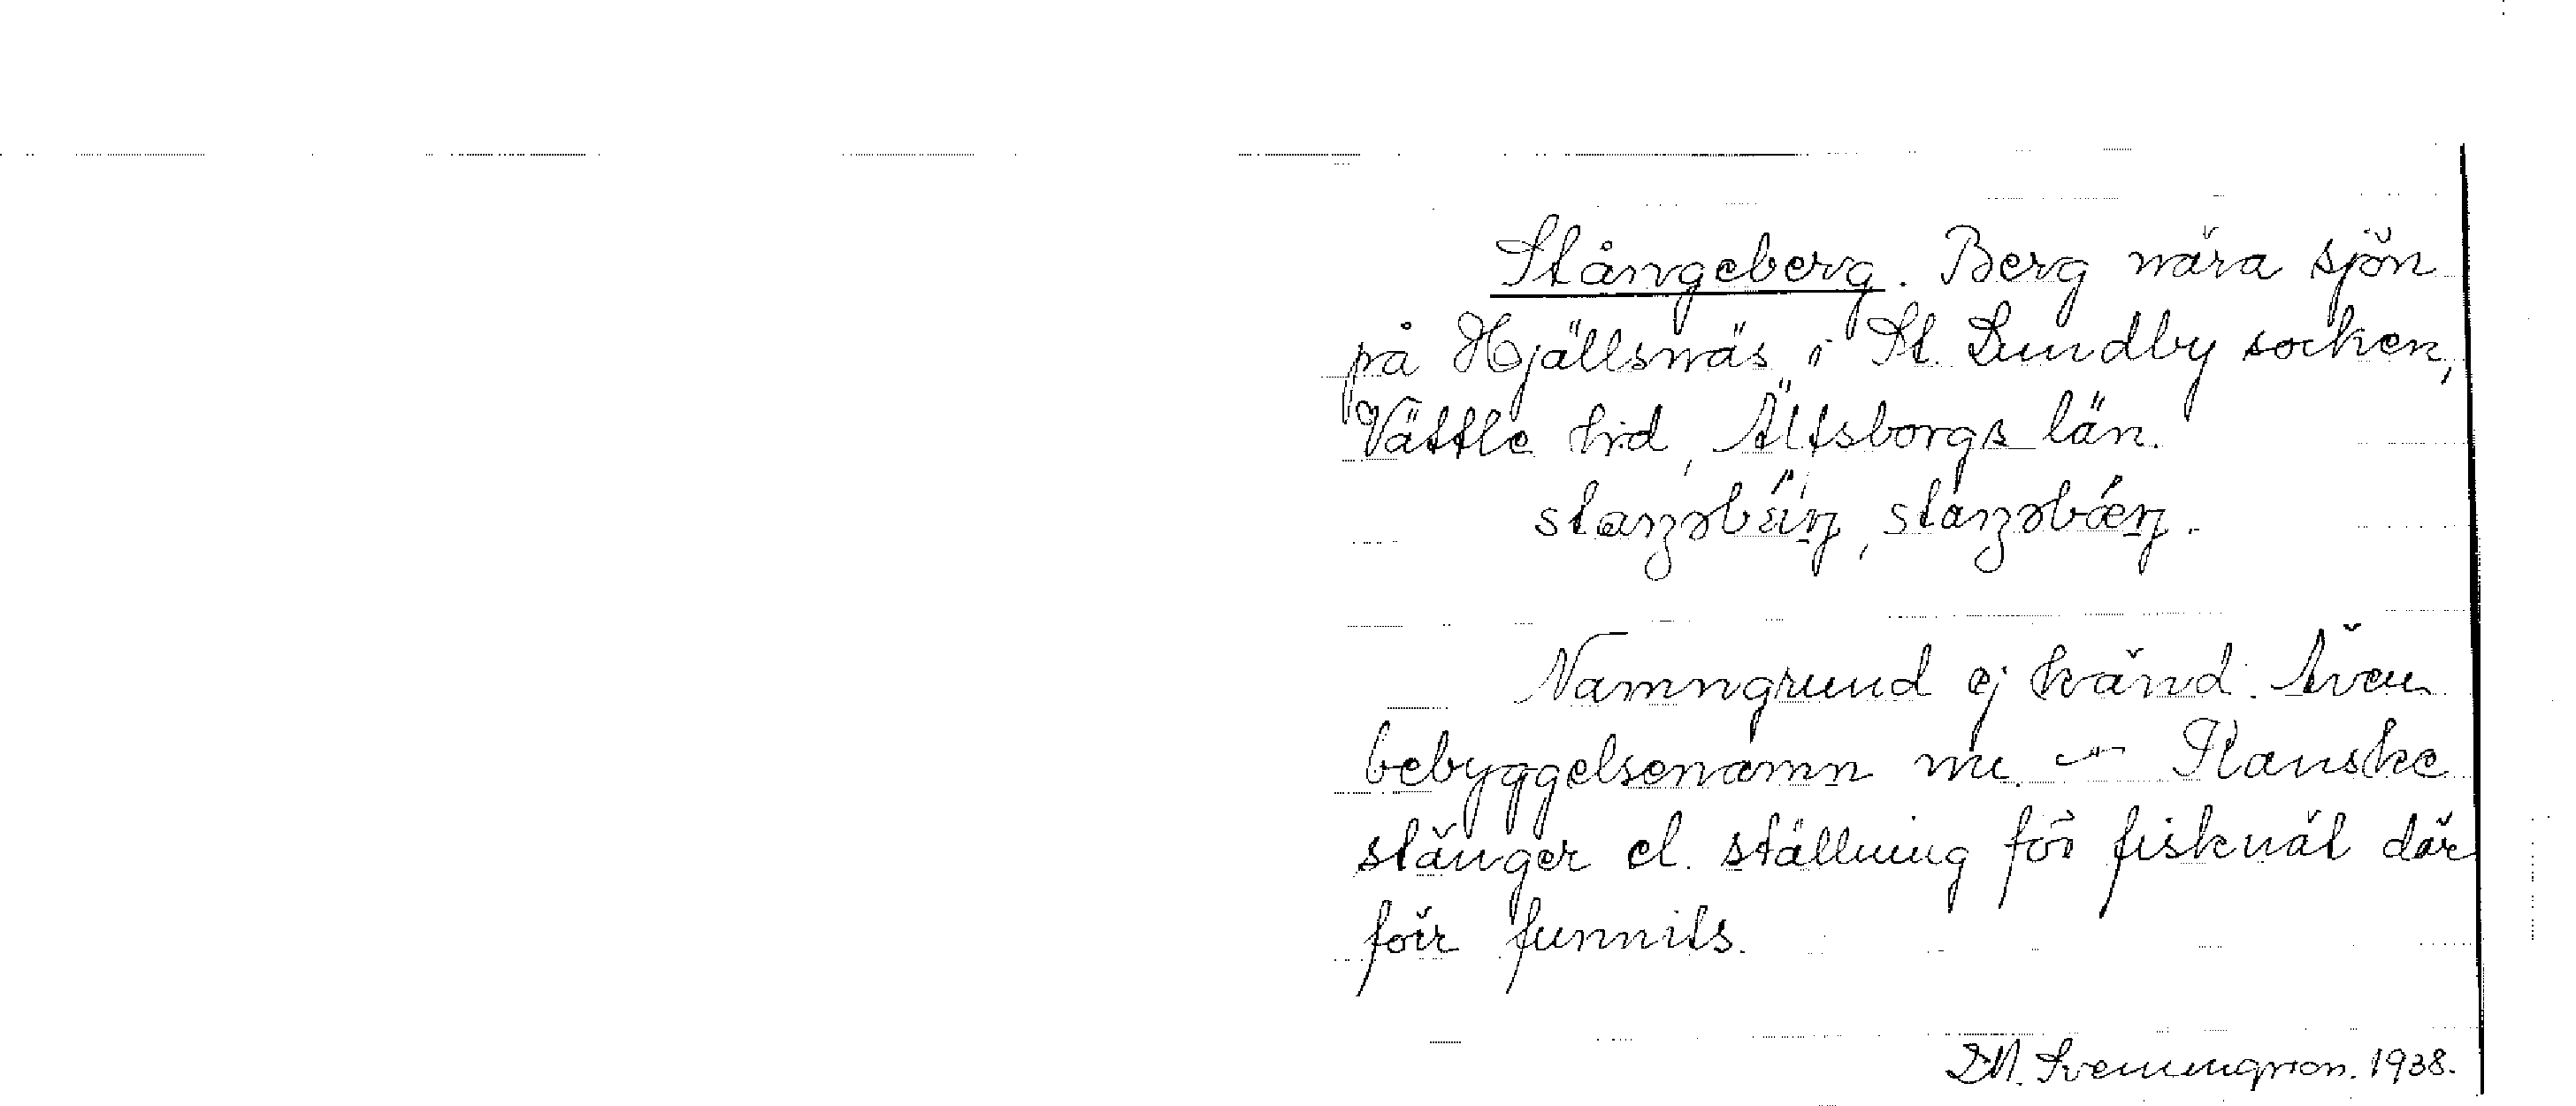 Stångeberg. Berg nära sjön
på Hjällsnäs i St. Lundby socken,
Vättle hd, Älfsborgs län.
Namngrund ej känd. Även
bebyggelsenamn nu. — Kanske
stänger el. ställning för fisknät där
förr funnits.
Svenungsson. 1938.